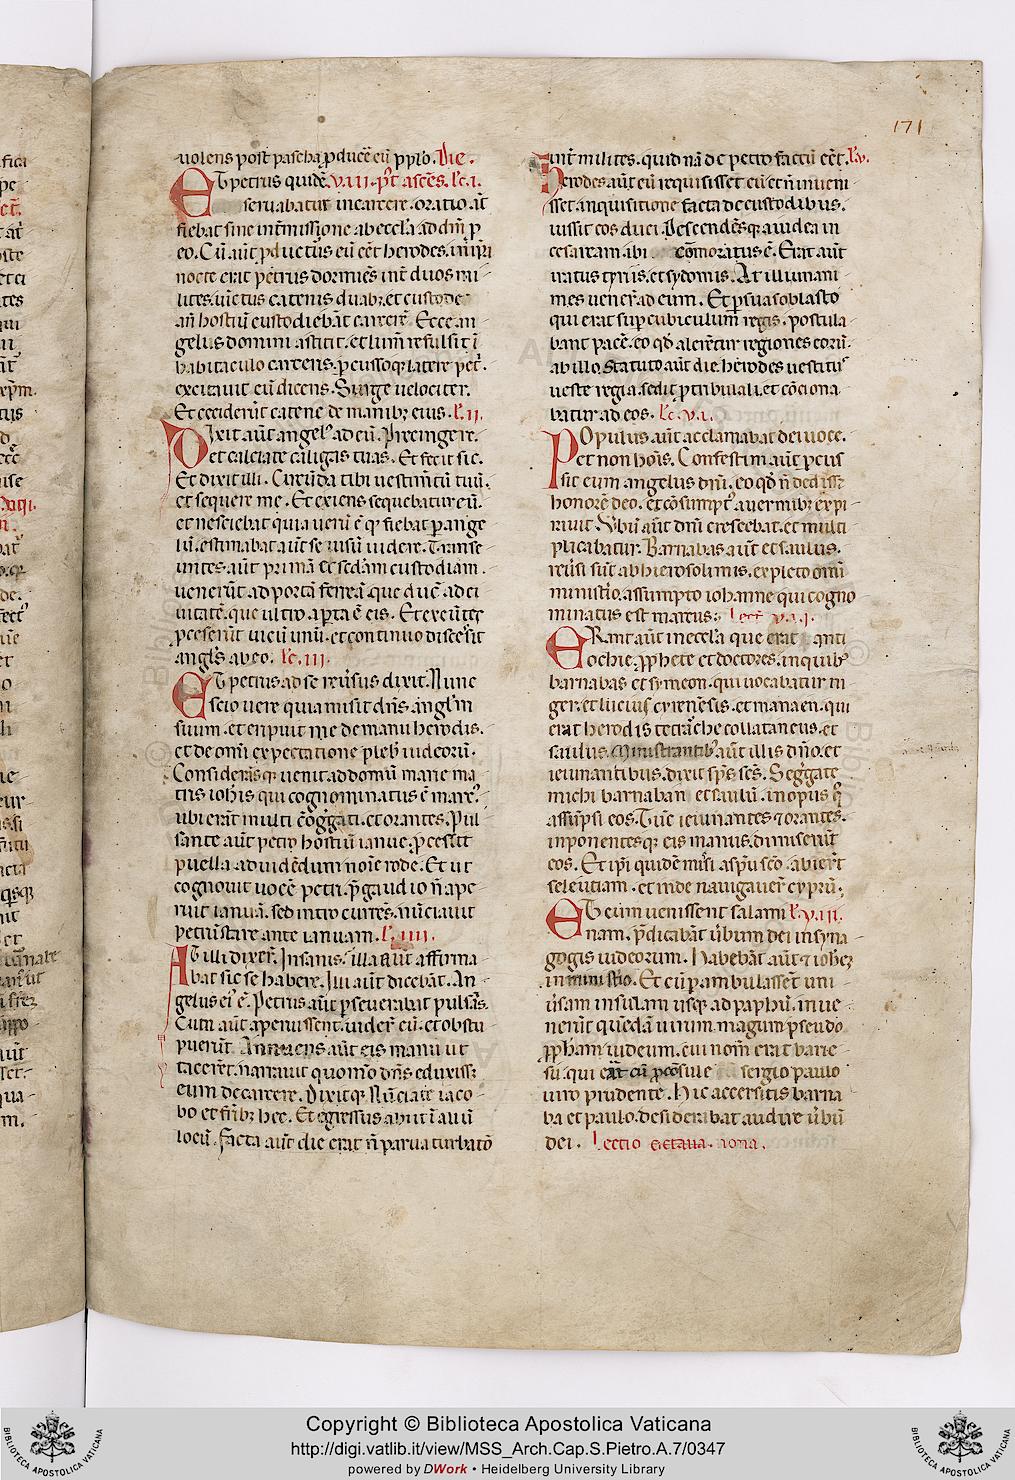 171
uolens post pascha ꝓduce͛ eu̅ pplo. Die.
Et petrus quide̅ VIII. p̅t asce̅s. lc̅. i.
seruabatur incarcere. oratio au̅t
fiebat sine int̅missione ab eccl̅a ad dm̅ p̱
eo. Cu̅ aut̅ ꝓducturus eu̅ ee̅t herodes. in ip̅i
nocte erat petrus dormie̅s int̅ duos mi
lites. uinctus catenis duabꝫ. et custode
an̅ hostiu̅ custodieba̅t carcere̅. Ecce an
gelus domini astitit. et lum̅ refulsit i̅
habitaculo carceris. p̱cussoqꝫ latere pet̅.
excitauit eu̅ dicens. Surge velociter.
Et cecideru̅t catene de manibꝫ eius. lc̅. ii.
Dixit aut̅ angelꝰ ad eu̅. Precingere.
et calciate caligas tuas. Et fecit sic.
Et dixit illi. Circu̅da tibi uestim̅tu̅ tuu̅.
et sequere me. Et exiens sequebatur eu̅.
et nesciebat quia ueru̅ e̅ qꝫ fiebat p̱ ange
lu̅. estimabat aut̅ se uisu̅ uidere. Transe
untes aut̅ prima̅ et seda̅m custodiam.
ueneru̅t ad porta̅ ferrea̅. que duc̅ ad ci
uitate̅. que ultro ap̱ta e̅ eis. Et exeu̅tes
p̱cesseru̅t uicu̅ unu̅. et continuo discessit
angl̅s ab eo. lc̅. iii.
Et petrus ad se reu̅sus dixit. Nunc
scio uere quia misit dn̅s angl̅m
suum. et eripuit me de manu herodis.
et de omi̅ expectatione pleb̅ iudeoru̅.
Consideransqꝫ uenit ad domu̅ marie ma
tris ioh̅is qui cognominatus e̅ marcꝰ.
ubi era̅t multi co̅g̅gati. et orantes. Pul
sante aut̅ petro hostiu̅ ianue. p̱cessit
puella ad uide̅dum noi̅e rode. Et ut
cognouit uoce̅ petri. p̅ gaudio n̅ ape
ruit ianua̅. sed intro curre̅s. nu̅ciauit
petru̅ stare ante ianuam. lc̅. iiii.
At illi dixer̅t. Insanis. illa au̅t affirma
bat sic se habere. Illi aut̅ diceba̅t. An
gelus eiꝰ e̅. Petrus aut̅ p̱seuerabat pulsa̅s.
Cum aut̅ aperuissent. uider̅t eu̅. et obstu
puerut̅. Annuens aut̅ eis manu ut
tacere̅t. narrauit quomo̅ dn̅s eduxissꝫ
eum de carcere. Dixitqꝫ. Nu̅ciate iaco
bo et fr̅ibꝫ hec. Et egressus abiit i̅ aliu̅
locu̅. Facta aut̅ die erat n̅ parua turbatio
int̅ milites. quid na̅ de petro factu̅ ee̅t. lc̅. v.
Herodes au̅t cu̅ requisisset eu̅ et n̅ inueni
sset. inquisitione facta de custodibus.
iussit eos duci. Descende̅sqꝫ a iudea in
cesaream. ibi co̅moratus e̅. Erat aut̅
iratus tyriis. et sydoniis. At illi unani
mes uener̅t ad eum. Et p̱suaso blasto
qui erat sup̱ cubiculum regis. postula
bant pace̅. eo qd̅ alere̅tur regiones eoru̅.
ab illo. Statuto aut̅ die. herodes uestitus
ueste regia. sedit p̱ tribunali. et co̅ciona
batur ad eos. lc̅. vi.
Populus aut̅ acclamabat dei uoce.
et non ho̅is. Confestim aut̅ p̱cus
sit eum angelus dn̅i. eo qd̅ n̅ dedissꝫ
honore̅ deo. et co̅sumptꝰ a uermibꝫ expi
rauit. V̅bu̅ aut̅ dn̅i crescebat. et multi
plicabatur. Barnabas au̅t et saulus.
reu̅si su̅t ab hierosolimis. expleto omi̅
ministerio. assumpto iohanne qui cogno
minatus est marcus. Lectio. vii.
Erant aut̅ in eccl̅a que erat anti
ochie. pp̱hete et doctores. in quibꝰ
barnabas et symeon. qui uocabatur ni
ger. et lucius cyrenesis. et manaen. qui
erat herodis tetrarche collataneus. et
saulus. Ministrantibꝰ aut̅ illis dn̅o. et
ieiunantibus. dixit sp̅s sc̅s. Seg̅gate
michi barnaban et saulu̅. in opus q̅
assu̅psi eos. Tu̅c ieiunantes ⁊ orantes.
inponentesqꝫ eis manus. dimiseru̅t
eos. Et ip̅i quide̅ missi a sp̅u sc̅o. abieru̅t
seleutiam. et inde nauigauer̅t cypru̅.
Et cum uenissent salami lc̅. viii.
nam. p̅dicaba̅t u̅bum dei in syna
gogis iudeorum. Habeba̅t aut̅ ⁊ ioh̅eꝫ
in ministerio. Et cu̅ p̱ambulassent uni
uersam insulam usqꝫ ad paphu̅. inue
neru̅t que̅da̅ uirum magum pseudo
pp̱ham iudeum. cui nom̅ erat barie
su. qui erat cu̅ p̱co̅sule sergio paulo
uiro prudente. Hic accersitis barna
ba et paulo. desiderabat audire u̅bu̅
dei. Lectio octaua. nona.
Copyright © Biblioteca Apostolica Vaticana
http://digi.vatlib.it/view/MSS_Arch.Cap.S.Pietro.A.7/0347
powered by DWork • Heidelberg University Library
BIBLIOTECA APOSTOLICA VATICANA
BIBLIOTECA APOSTOLICA VATICANA